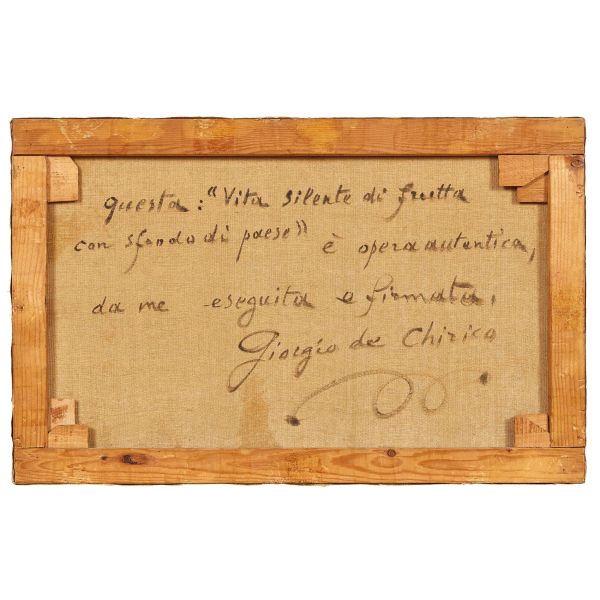 questa: "Vita silente di frutta
con sfondo di paese" è opera autentica,
da me eseguita e firmata.
Giorgio de Chirico